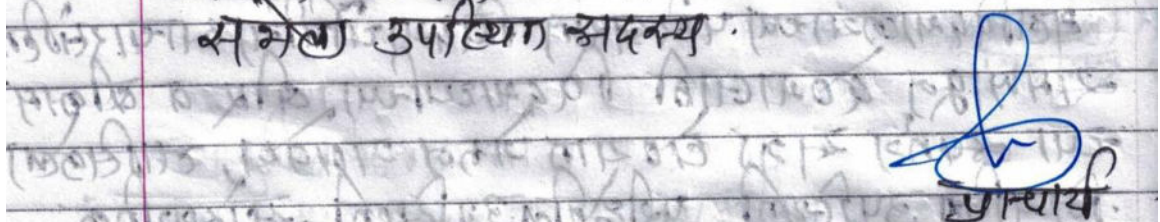 सभेला उपस्थित सदस्य.
प्राचार्य